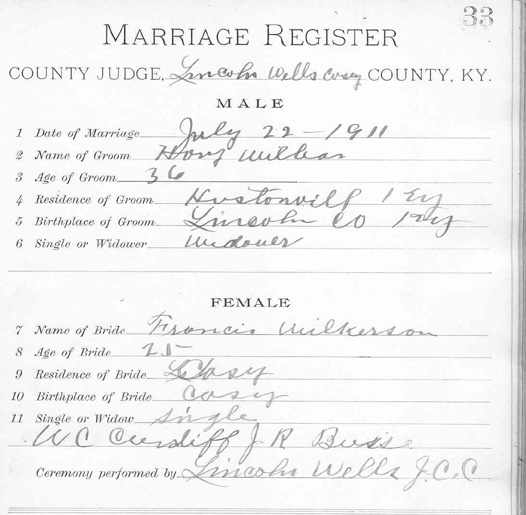 33
MARRIAGE REGISTER
COUNTY JUDGE, Lincoln Wells Cosy COUNTY, KY.
MALE
1 Date of Marriage July 22-1911
2 Name of Groom
3 Age of Groom 36
4 Residence of Groom Hustonvill Ky
5 Birthplace of Groom Lincoln CO Ky
6 Single or Widower Widower
FEMALE
7 Name of Bride Francis Wilkerson
8 Age of Bride 25
9 Residence of Bride Cosy
10 Birthplace of Bride Cosy
11 Single or Widow Single
W C Cundiff J R
Ceremony performed by Lincoln Wells J.C.C